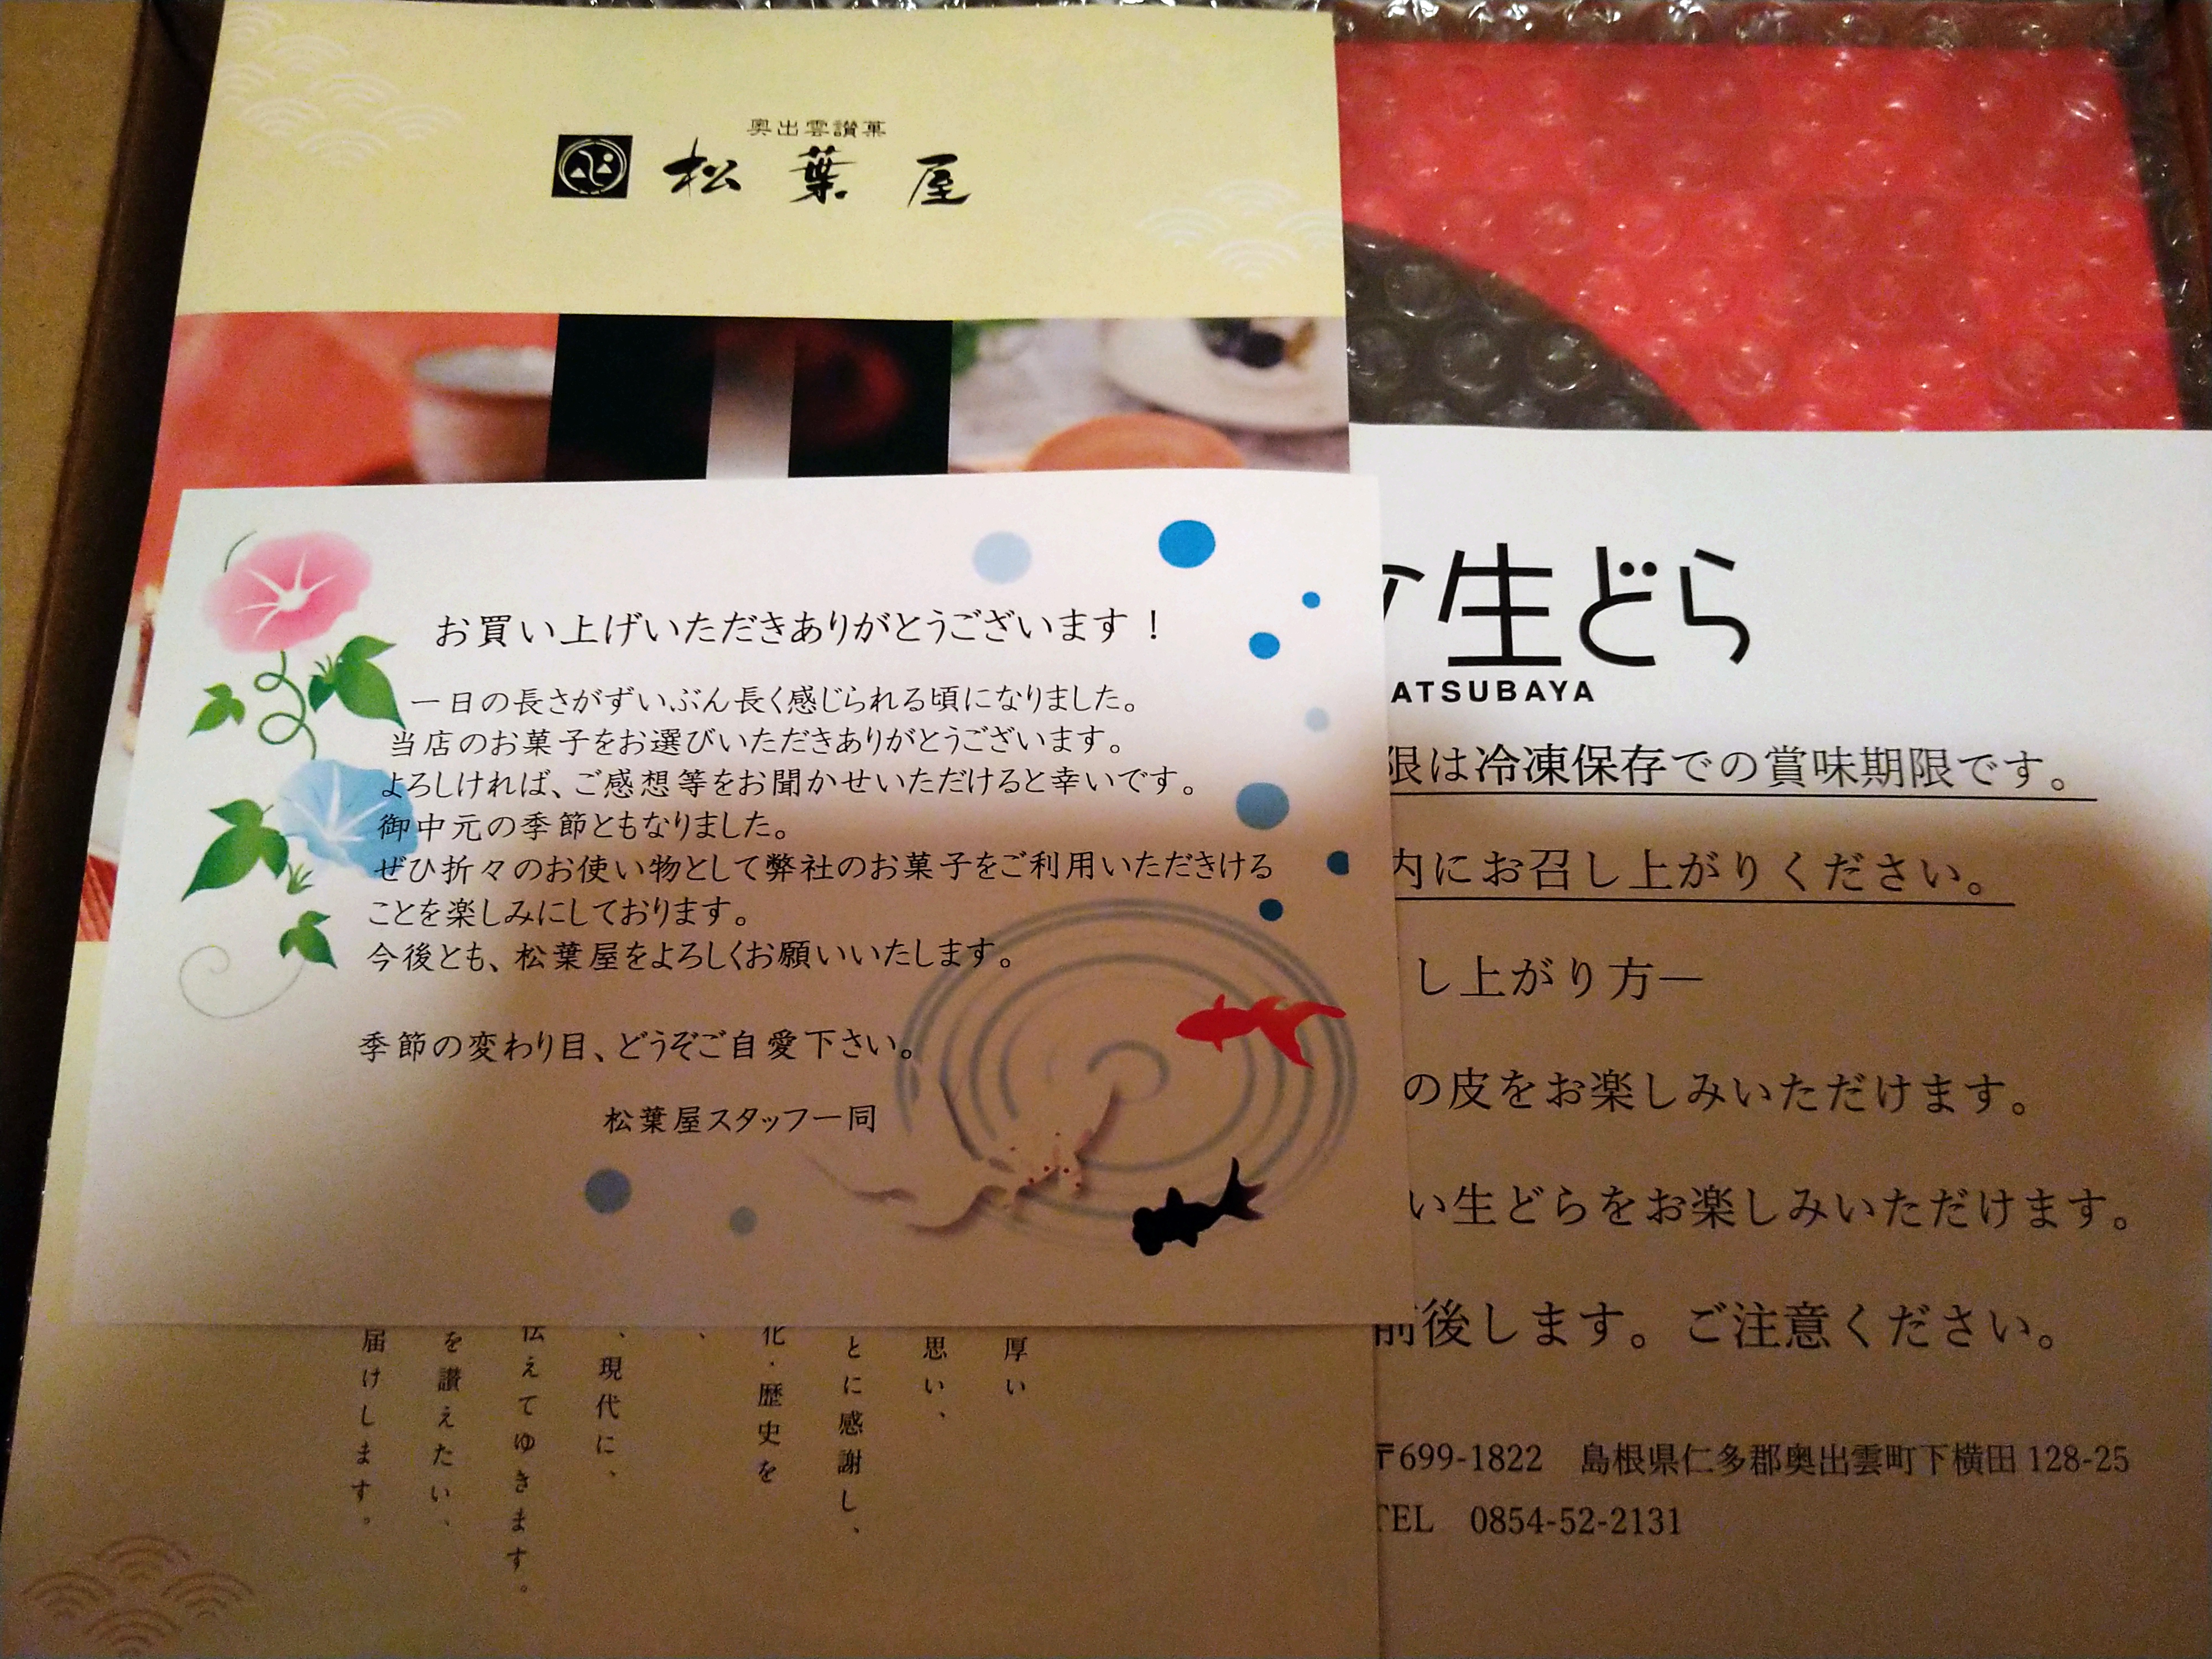 奥出雲讃菓
松葉屋
お買い上げいただきありがとうございます！
一日の長さがずいぶん長く感じられる頃になりました。
当店のお菓子をお選びいただきありがとうございます。
よろしければ、ご感想等をお聞かせいただけると幸いです。
御中元の季節ともなりました。
ぜひ折々のお使い物として弊社のお菓子をご利用いただきける
ことを楽しみにしております。
今後とも、松葉屋をよろしくお願いいたします。
季節の変わり目、どうぞご自愛下さい。
松葉屋スタッフ一同
厚い
思い、
とに感謝し、
化・歴史を
、
、現代に、
伝えてゆきます。
を讃えたい、
届けします。
生どら
ATSUBAYA
限は冷凍保存での賞味期限です。
内にお召し上がりください。
し上がり方―
の皮をお楽しみいただけます。
い生どらをお楽しみいただけます。
前後します。ご注意ください。
〒699-1822 島根県仁多郡奥出雲町下横田 128-25
TEL 0854-52-2131